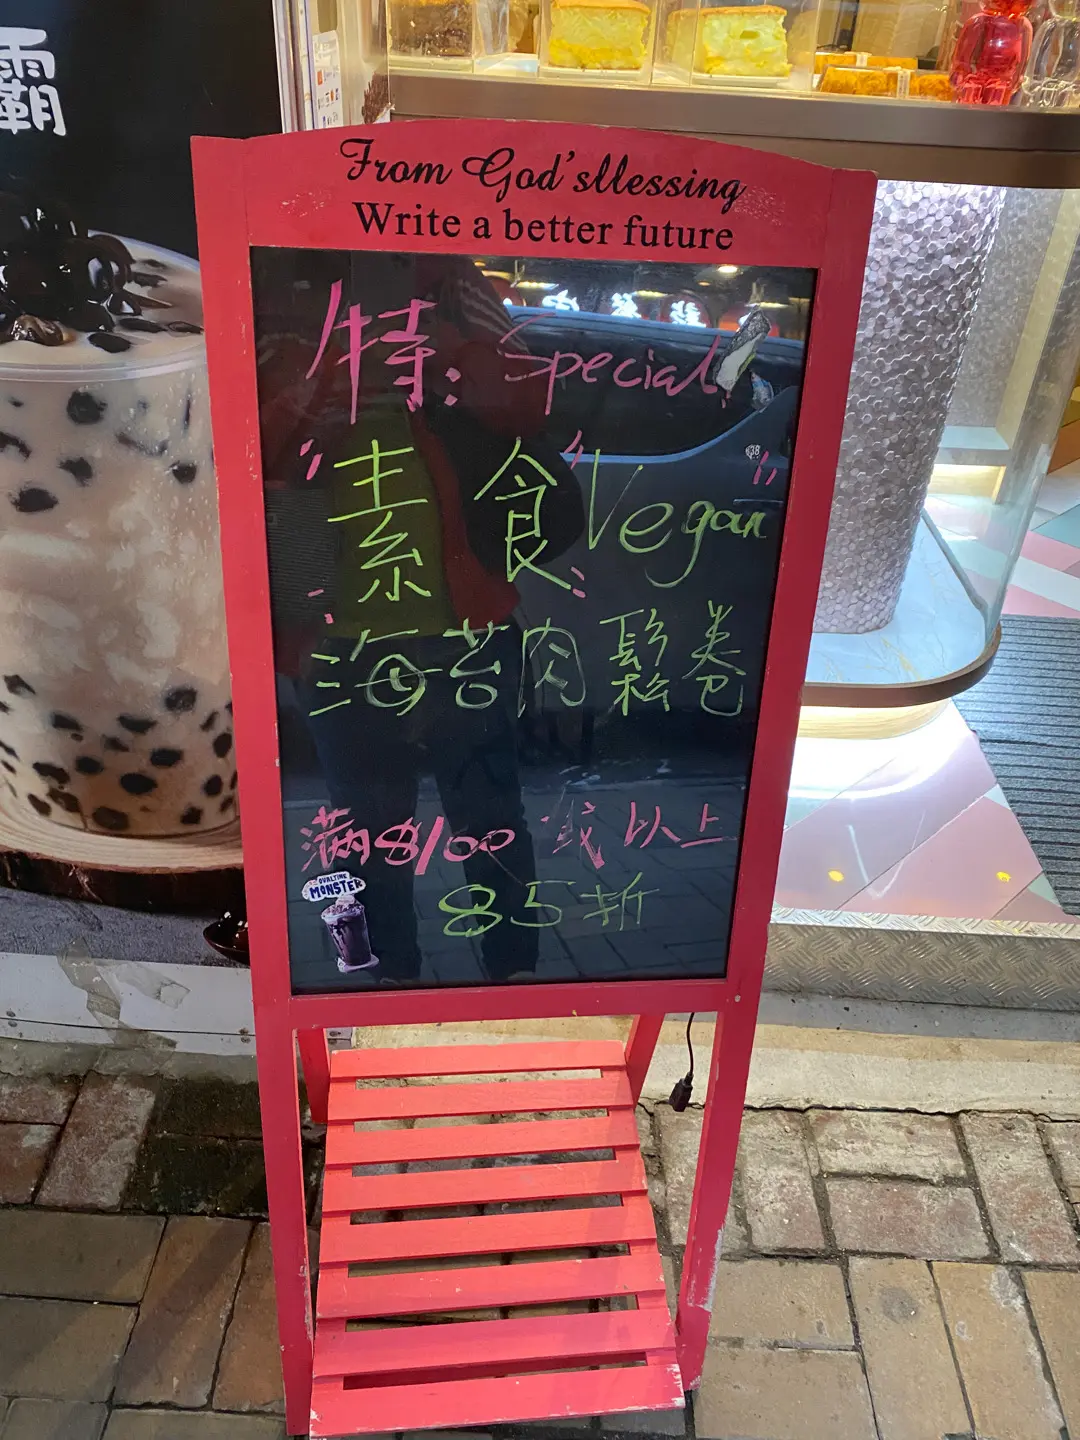 霸
From God'sllessing
Write a better future
特: Special
素食 Vegan
海苔肉鬆卷
滿$100 或以上
85折
OVALTINE
MONSTER